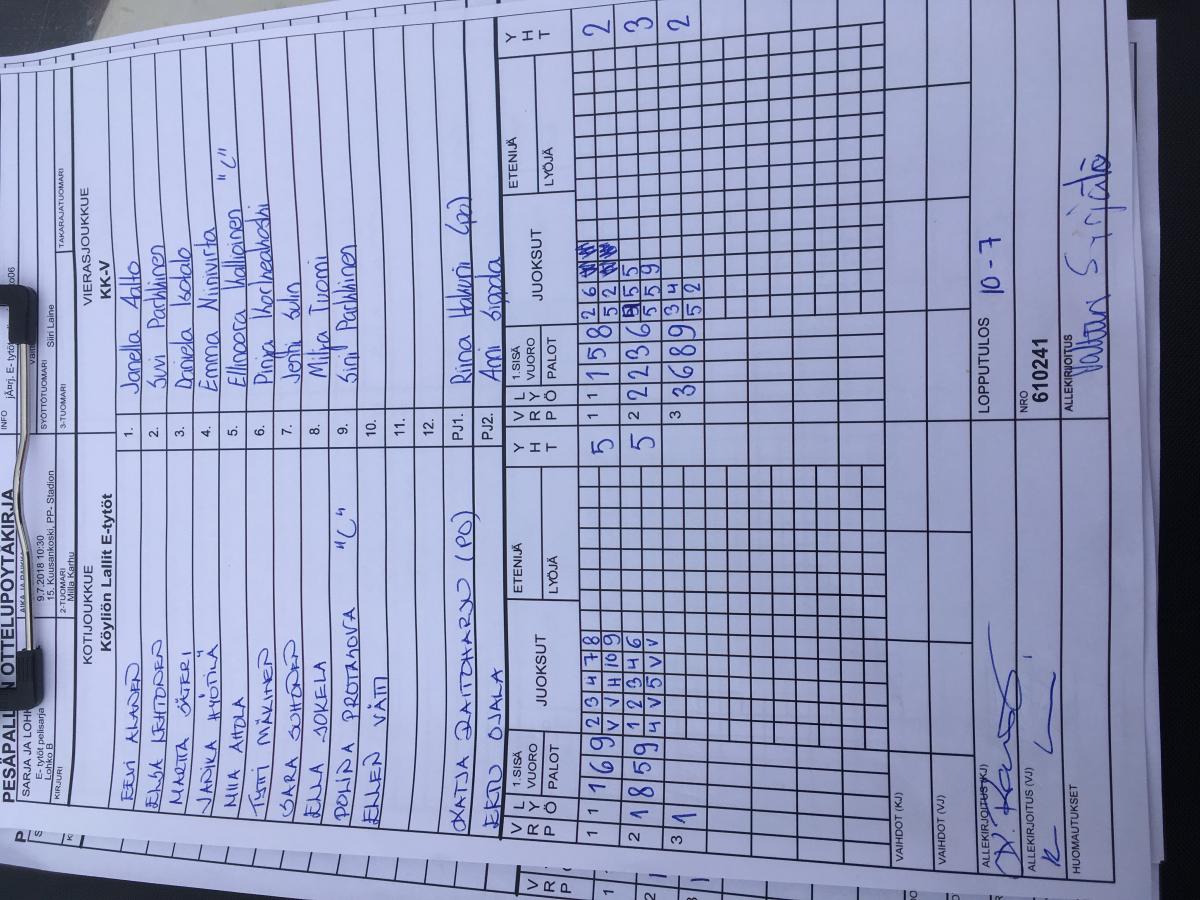 PESÄPALLON OTTELUPÖYTÄKIRJA
SARJA JA LOHKO
E- tytöt pelisarja
Lohko B
9.7.2018 10:30
15. Kuusankoski, PP- Stadion
INFO
KIRJURI
2-TUOMARI
Milla Karhu
SYÖTTÖTUOMARI
Siiri Laine
3-TUOMARI
TAKARAJATUOMARI
KOTIJOUKKUE
Köyliön Lallit E-tytöt
VIERASJOUKKUE
KK-V
EEVI ALANEN 1. Janella Aalto
ELSA LEHTONEN 2. Suvi Parkkinen
MARTTA SÄTERI 3. Daniela Isotalo
JANIKA HYÖTILÄ 4. Emma Niinivirta
NIIA AHOLA 5. Ellinoora Kallioinen "C"
TYTTI MÄKINEN 6. Pinja Korkeakoski
SARA SUHONEN 7. Jenni Sulin
ELLA JOKELA 8. Milja Tuomi
POLINA PROTASOVA "C" 9. Sini Parkkinen
ELLEN VÄTTI 10.
11.
12.
KATJA RAITOHARJU (PO) PJ1. Riina Hakuni (po)
EERO OJALA PJ2. Ami Sippola
V R P L Y Ö 1.SISÄ VUORO PALOT JUOKSUT ETENIJÄ LYÖJÄ Y H T V R P L Y Ö 1.SISÄ VUORO PALOT JUOKSUT ETENIJÄ LYÖJÄ Y H T
1 1 1 6 9 2 3 4 7 8 5 1 1 1 5 8 2 6 2
V V H 10 9 5 2
2 1 8 5 9 1 2 3 4 6 5 2 2 2 3 6 5 5 3
4 V 5 V V 5 5 9
3 1 3 3 6 8 9 3 4 2
5 2
VAIHDOT (KJ)
VAIHDOT (VJ)
ALLEKIRJOITUS (KJ)
LOPPUTULOS 10 - 7
ALLEKIRJOITUS (VJ)
NRO
610241
HUOMAUTUKSET
ALLEKIRJOITUS